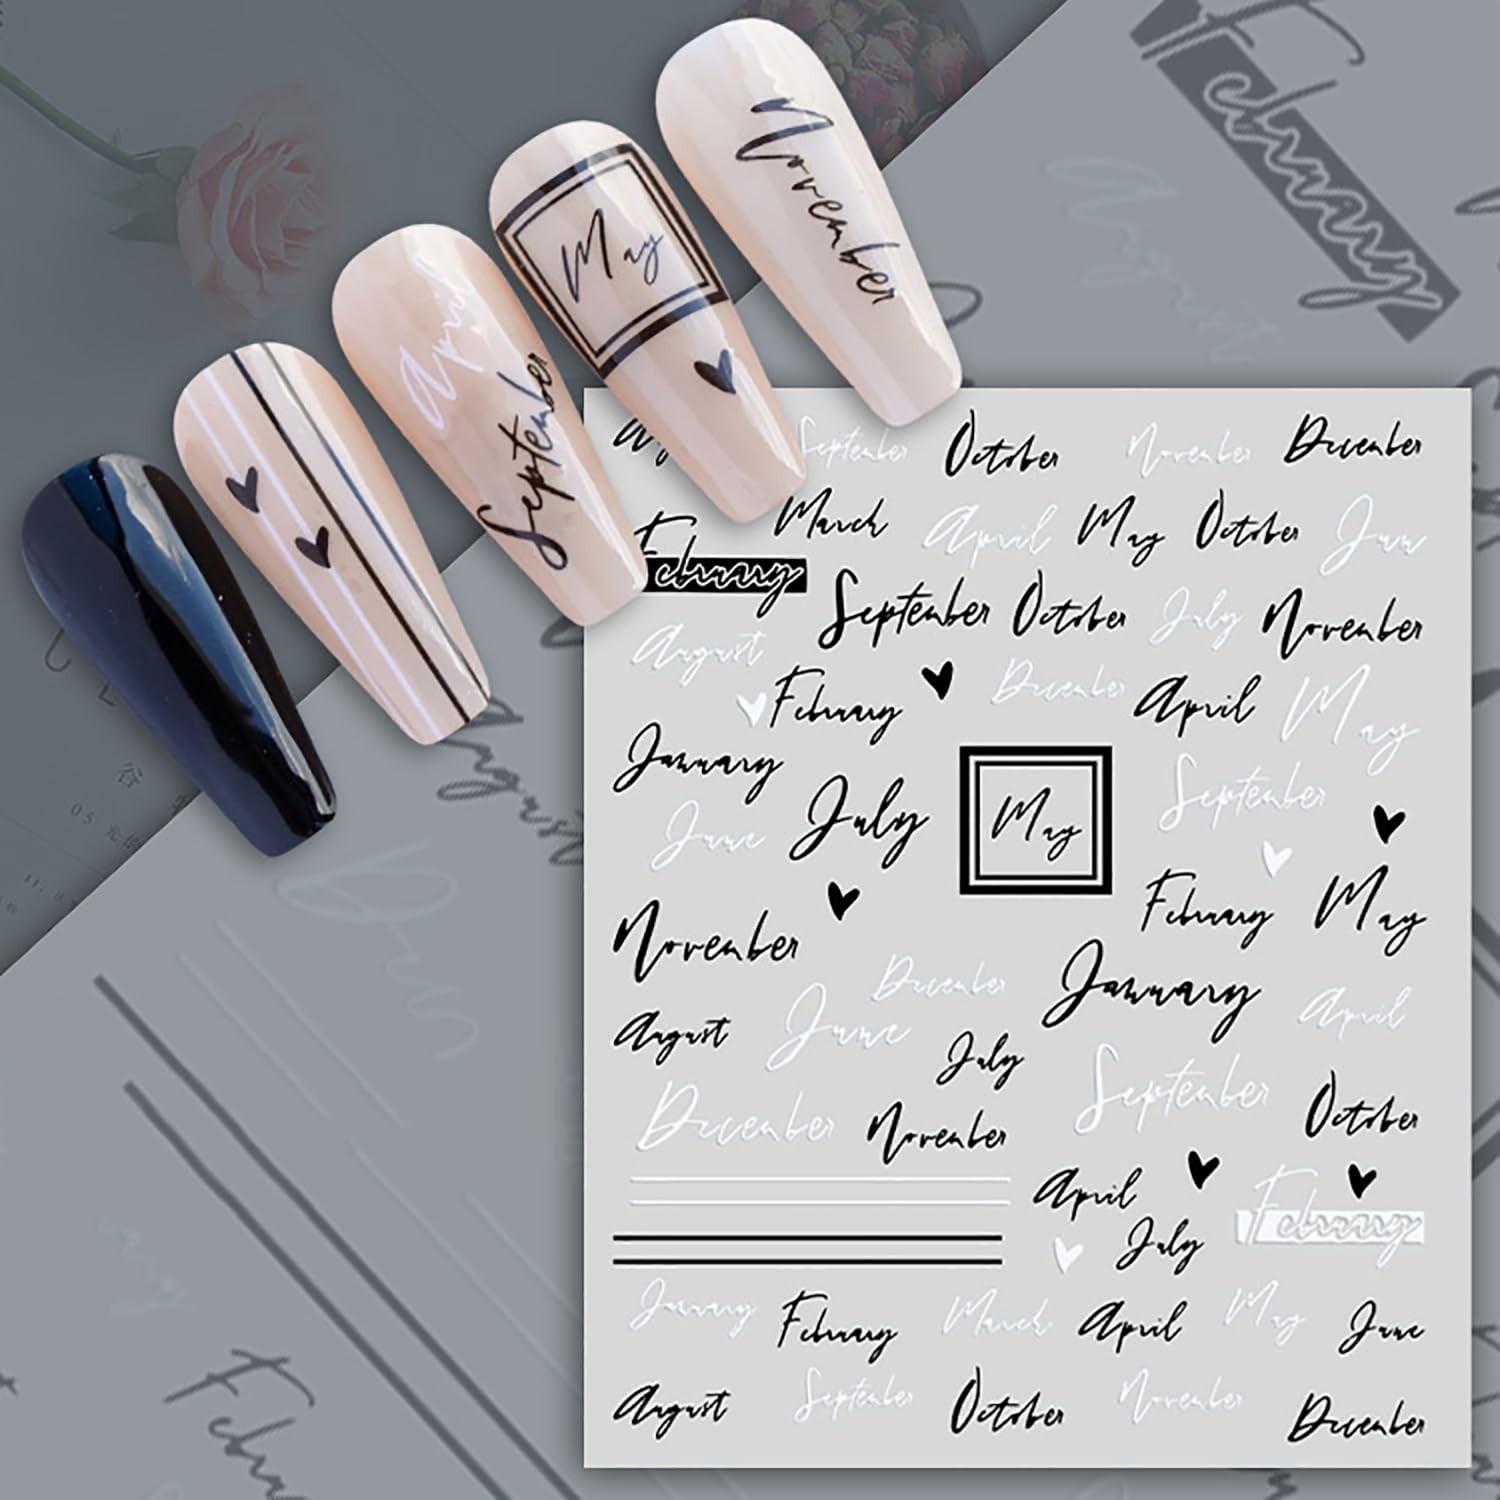 November
May
April
September
September October November December
March April May October
February
September October July November
August
February December April May
January
September
June July May
February May
November
December
January April
August June July
September October
December November
April February
July
January February March April May June
August September October November December
February
August
August